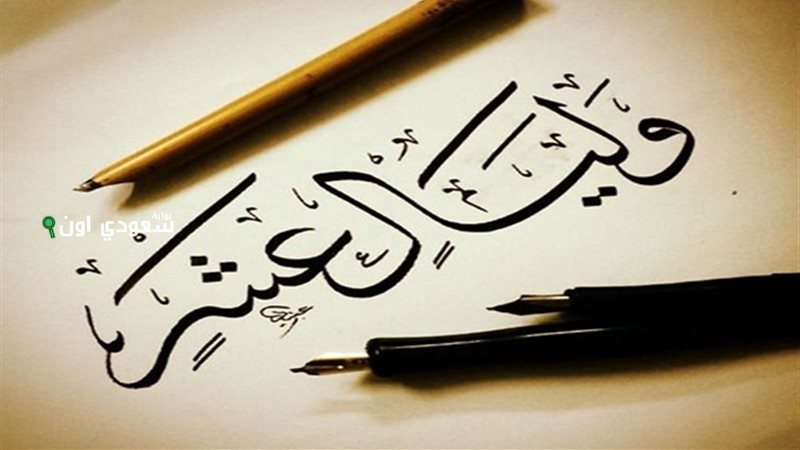 وَلَيَالٍ عَشْرٍ
بوابة
سعودي اون